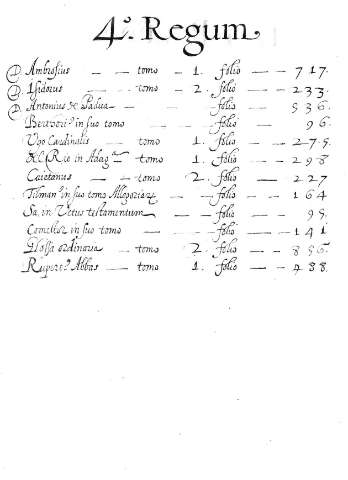 4.º Regum
D. Ambrosius — — tomo — 1. folio — — 717.
D. Isidorus — — tomo — 2. folio — — 233.
D. Antonius de Padua — — folio — — 536.
in suo tomo — folio — — 96.
Ugo Cardinalis — tomo 1. folio — — 275.
Del Rio in Adag. — tomo 1. folio — — 298
Caietanus — — tomo — 2. folio — — 227
Tilman.⁹ in suo tomo Allegoriar — folio — — 164
Sa, in Vetus testamentum — folio — — 95.
Comestor in suo tomo — — folio — — 141
Glossa ordinaria — tomo 2. folio — — 856.
Rupert.⁹ Abbas — tomo — 1. folio — — 488.